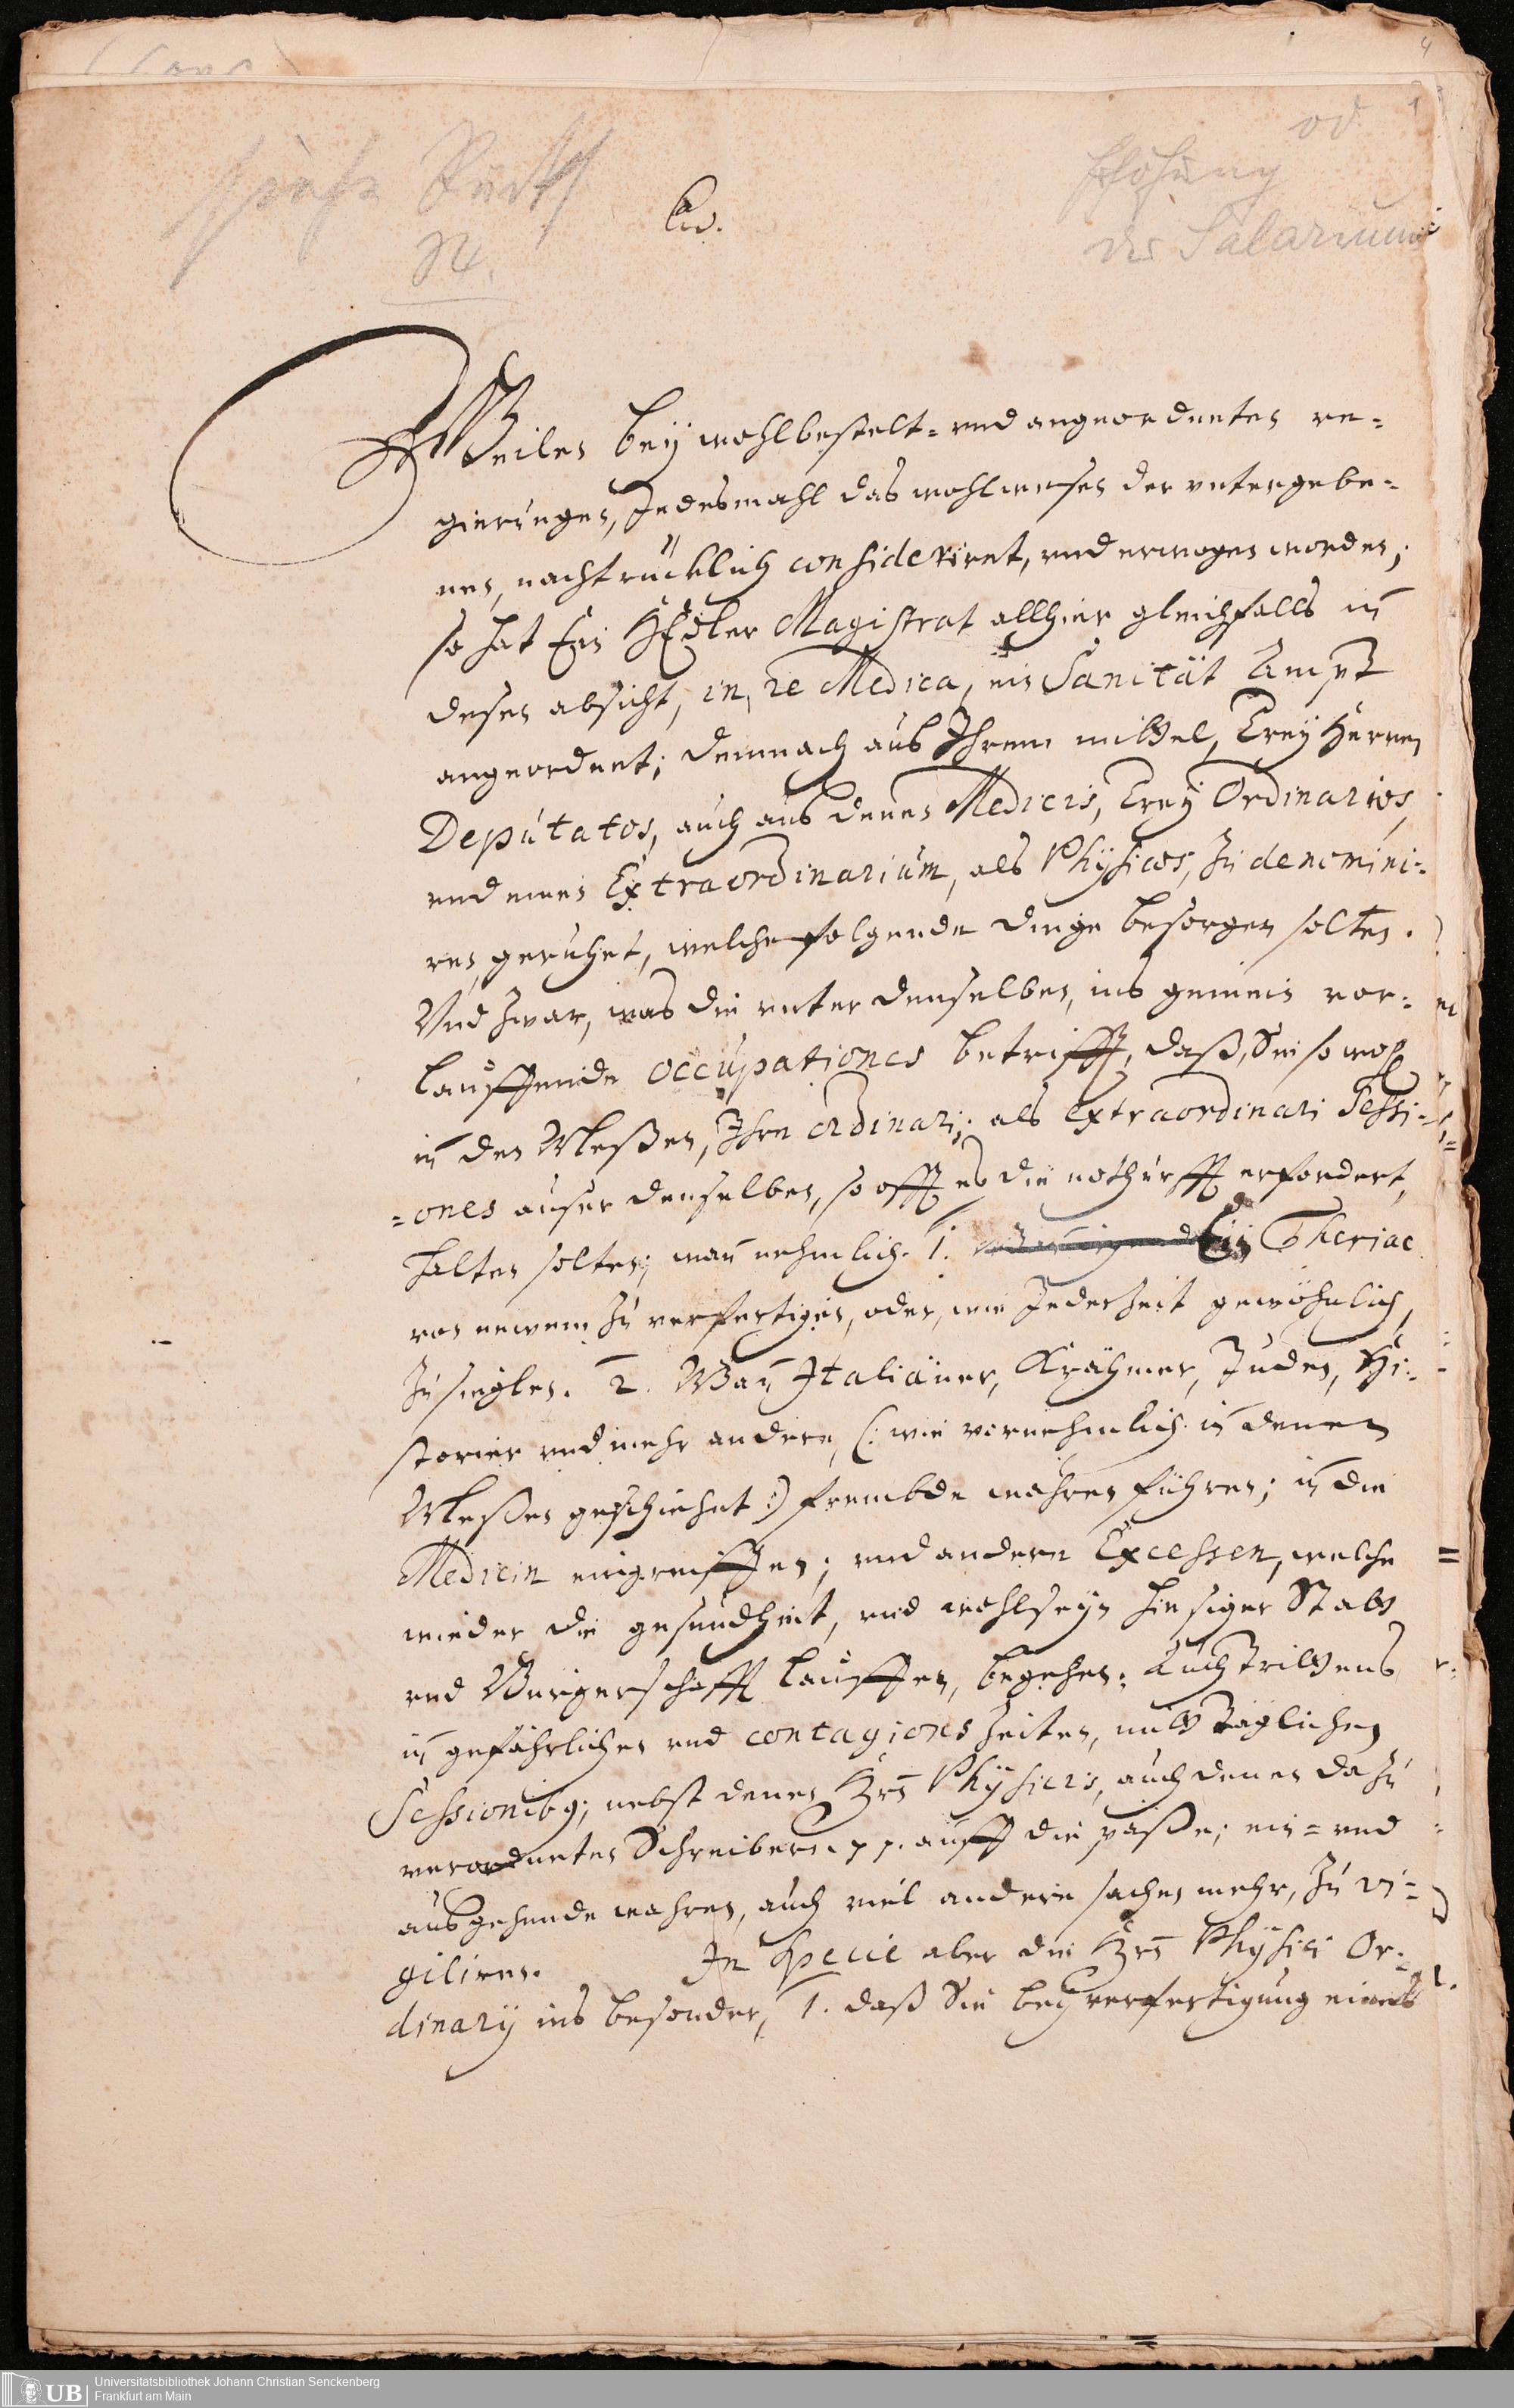 4
1
siehe
od
Erhöhung
des Salariums
Weilen beÿ wohlbestelt- und angeordneten re-
gierungen, Jedesmahl das wohlwesen der untergebe-
nen, nachtrücklich consideriret, und erwogen worden;
so hat Ein HEdler Magistrat allhier gleichfalls in
deser absicht, in re Medica, ein Sanität Ampt
angeordnet; demnach aus Ihrem mittel, Dreÿ Herren
Deputatos, auch aus denen Medicis, Dreÿ Ordinarios,
und einen Extraordinarium, als Physicos, zu denomini-
ren geruhet, welche folgende dinge besorgen solten.
Und zwar, was die unter denselben, ins gemein vor-
lauffende occupationes betrifft, daß, Sie so wohl
in den Meßen, Ihre ordinari; als extraordinari Sessi-
=ones auser denselben, so offt es die nothurfft erfordert,
halten solten; wan nehmlich. 1. Ein Theriac
von newem zu verfertigen, oder, wie Jederzeit gewöhnlich,
zusieglen. 2. Wan Italiäner, Krähmer, Juden, Hi-
storier und mehr andere, (: wie vornehmlich in denen
Meßen geschiehet :) frembde wahren führen; in die
Medicin eingreiffen; und andere Excessen, welche
wieder die gesundheit, und wohlseÿn hiesiger Statt
und Burgerschafft lauffen, begehen. Auch drittens
in gefährlichen und contagions zeiten, mitt täglichen
Sessionibus; nebst denen Hrn Physicis, auch denen dazu
verordneten Schreibern. pp. auff die päße; ein- und
ausgehende wahren, auch viel andere sachen mehr, zu vi-
giliren. In Specie aber die Hrn Physici Or-
dinarÿ ins besonder, 1. daß Sie beÿ verfertigung eines
UB Universitätsbibliothek Johann Christian Senckenberg
Frankfurt am Main